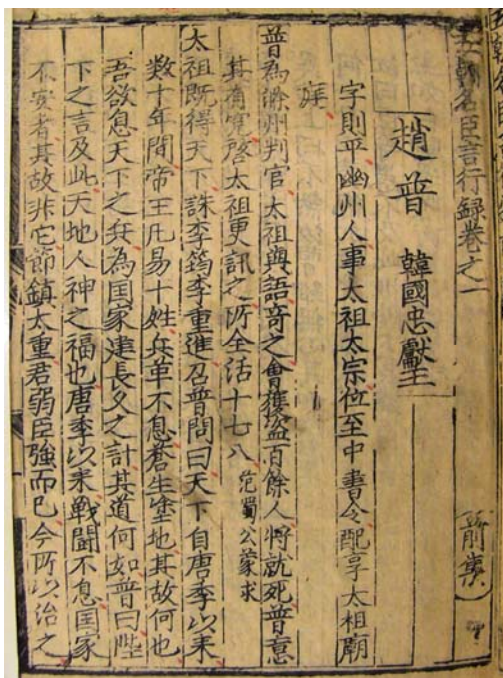 五朝名臣言行録卷之一 前集
趙普 韓國忠獻王
字則平幽州人事太祖太宗位至中書令配享太祖廟
庭
普為滁州判官太祖與語奇之會獲盜百餘人將就死普意
其有寃啓太祖更訊之所全活十七八 范蜀公蒙求
太祖既得天下誅李筠李重進召普問曰天下自唐季以来
数十年間帝王凡易十姓兵革不息蒼生塗地其故何也
吾欲息天下之兵為囯家建長久之計其道何如普曰陛
下之言及此天地人神之福也唐季以来戰鬪不息囯家
不安者其故非它節鎮太重君弱臣強而已今所以治之